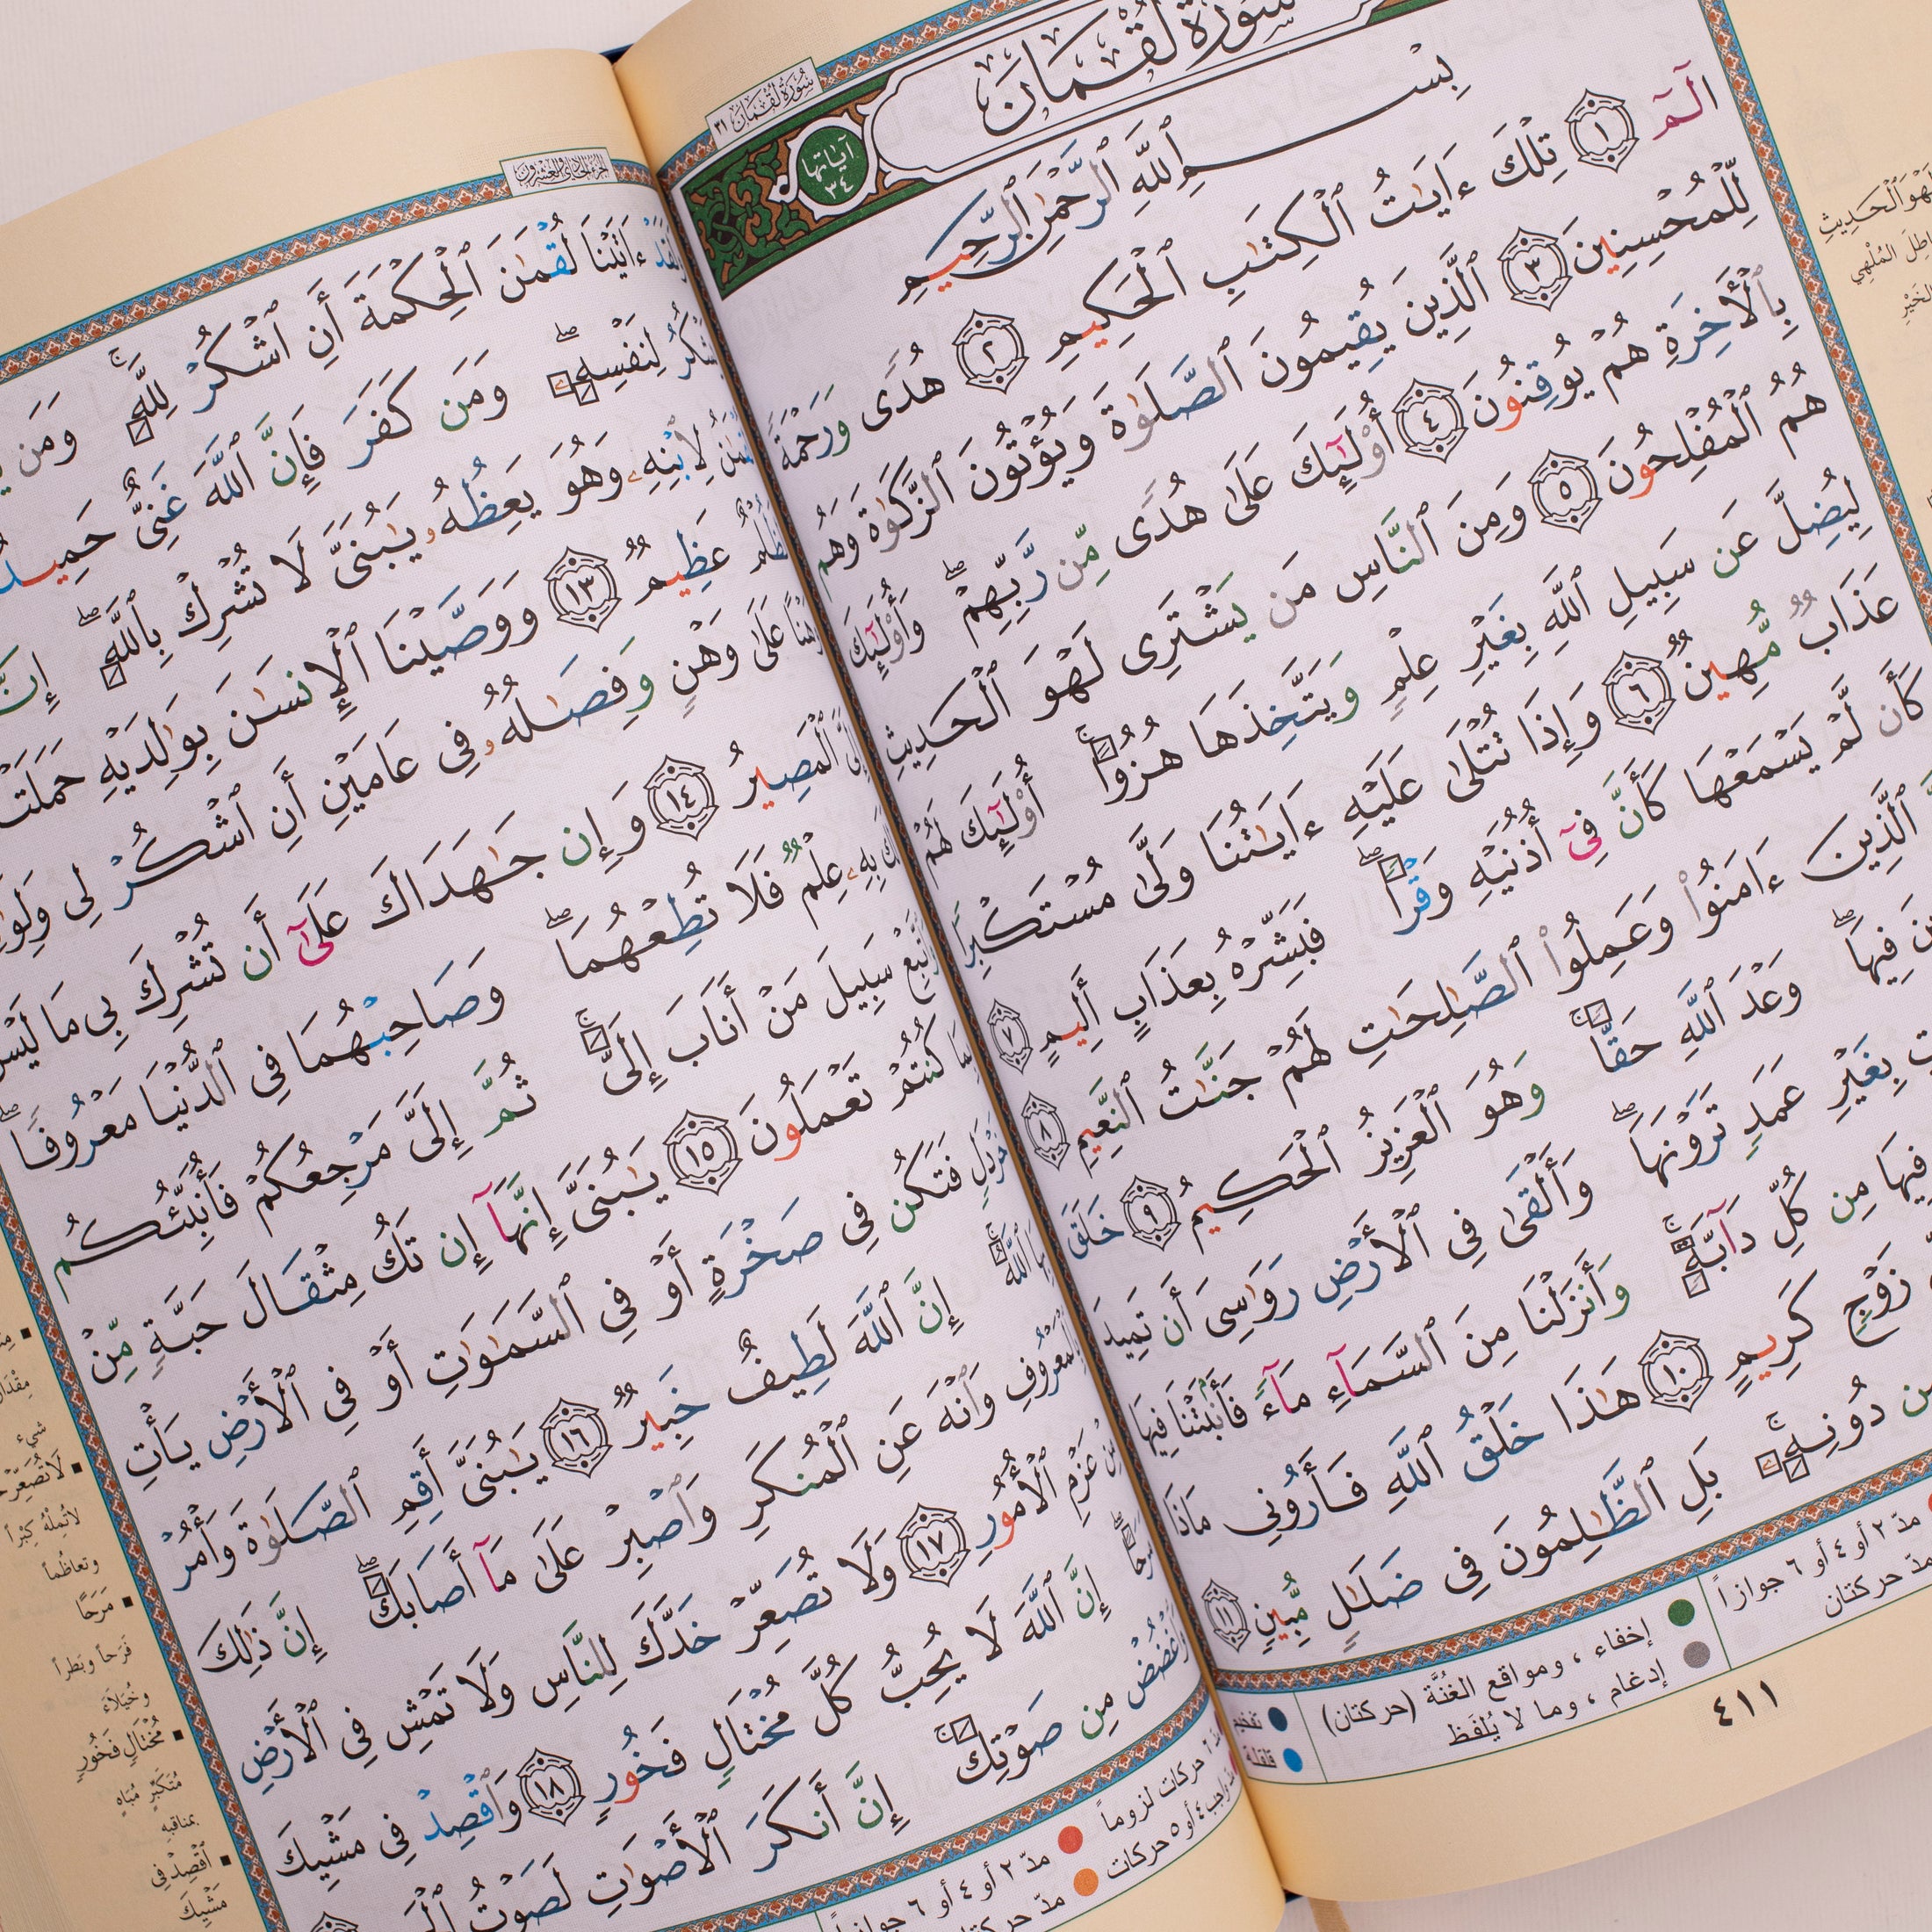 سُورَةُ لُقْمَانَ ٣١
سُورَةُ لُقْمَانَ
آيَاتُهَا ٣٤
بِسْمِ ٱللَّهِ ٱلرَّحْمَٰنِ ٱلرَّحِيمِ
الٓمٓ ١ تِلْكَ ءَايَٰتُ ٱلْكِتَٰبِ ٱلْحَكِيمِ ٢ هُدًى وَرَحْمَةً
لِّلْمُحْسِنِينَ ٣ ٱلَّذِينَ يُقِيمُونَ ٱلصَّلَوٰةَ وَيُؤْتُونَ ٱلزَّكَوٰةَ وَهُم
بِٱلْأَخِرَةِ هُمْ يُوقِنُونَ ٤ أُوْلَٰٓئِكَ عَلَىٰ هُدًى مِّن رَّبِّهِمْ ۖ وَأُوْلَٰٓئِكَ
هُمُ ٱلْمُفْلِحُونَ ٥ وَمِنَ ٱلنَّاسِ مَن يَشْتَرِى لَهْوَ ٱلْحَدِيثِ
لِيُضِلَّ عَن سَبِيلِ ٱللَّهِ بِغَيْرِ عِلْمٍ وَيَتَّخِذَهَا هُزُوًا ۚ أُوْلَٰٓئِكَ لَهُمْ
عَذَابٌ مُّهِينٌ ٦ وَإِذَا تُتْلَىٰ عَلَيْهِ ءَايَٰتُنَا وَلَّىٰ مُسْتَكْبِرًا
كَأَن لَّمْ يَسْمَعْهَا كَأَنَّ فِىٓ أُذُنَيْهِ وَقْرًا ۖ فَبَشِّرْهُ بِعَذَابٍ أَلِيمٍ ٧
ٱلَّذِينَ ءَامَنُوا۟ وَعَمِلُوا۟ ٱلصَّٰلِحَٰتِ لَهُمْ جَنَّٰتُ ٱلنَّعِيمِ ٨
فِيهَا ۖ وَعْدَ ٱللَّهِ حَقًّا ۚ وَهُوَ ٱلْعَزِيزُ ٱلْحَكِيمُ ٩ خَلَقَ
بِغَيْرِ عَمَدٍ تَرَوْنَهَا ۖ وَأَلْقَىٰ فِى ٱلْأَرْضِ رَوَٰسِىَ أَن تَمِيدَ
فِيهَا مِن كُلِّ دَآبَّةٍ ۚ وَأَنزَلْنَا مِنَ ٱلسَّمَآءِ مَآءً فَأَنۢبَتْنَا فِيهَا
زَوْجٍ كَرِيمٍ ١٠ هَٰذَا خَلْقُ ٱللَّهِ فَأَرُونِى مَاذَا
دُونِهِۦ ۚ بَلِ ٱلظَّٰلِمُونَ فِى ضَلَٰلٍ مُّبِينٍ ١١
مدّ ٢ أو ٤ أو ٦ جوازاً
مدّ حركتان
إخفاء ، ومواقع الغُنَّة (حركتان)
إدغام ، وما لا يُلفَظ
تفخيم
قلقلة
٤١١
لَهْوَ ٱلْحَدِيثِ
المُلْهِي
الجزء الحادي والعشرون
وَلَقَدْ ءَاتَيْنَا لُقْمَٰنَ ٱلْحِكْمَةَ أَنِ ٱشْكُرْ لِلَّهِ ۚ وَمَن
يَشْكُرُ لِنَفْسِهِۦ ۖ وَمَن كَفَرَ فَإِنَّ ٱللَّهَ غَنِىٌّ حَمِيدٌ
لُقْمَٰنُ لِٱبْنِهِۦ وَهُوَ يَعِظُهُۥ يَٰبُنَىَّ لَا تُشْرِكْ بِٱللَّهِ ۖ إِنَّ
لَظُلْمٌ عَظِيمٌ ١٣ وَوَصَّيْنَا ٱلْإِنسَٰنَ بِوَٰلِدَيْهِ حَمَلَتْ
وَهْنًا عَلَىٰ وَهْنٍ وَفِصَٰلُهُۥ فِى عَامَيْنِ أَنِ ٱشْكُرْ لِى
إِلَىَّ ٱلْمَصِيرُ ١٤ وَإِن جَٰهَدَاكَ عَلَىٰٓ أَن تُشْرِكَ بِى مَا لَيْسَ
لَكَ بِهِۦ عِلْمٌ فَلَا تُطِعْهُمَا ۖ وَصَاحِبْهُمَا فِى ٱلدُّنْيَا مَعْرُوفًا ۖ
وَٱتَّبِعْ سَبِيلَ مَنْ أَنَابَ إِلَىَّ ۚ ثُمَّ إِلَىَّ مَرْجِعُكُمْ فَأُنَبِّئُكُم
بِمَا كُنتُمْ تَعْمَلُونَ ١٥ يَٰبُنَىَّ إِنَّهَآ إِن تَكُ مِثْقَالَ حَبَّةٍ مِّنْ
خَرْدَلٍ فَتَكُن فِى صَخْرَةٍ أَوْ فِى ٱلسَّمَٰوَٰتِ أَوْ فِى ٱلْأَرْضِ يَأْتِ
بِهَا ٱللَّهُ ۚ إِنَّ ٱللَّهَ لَطِيفٌ خَبِيرٌ ١٦ يَٰبُنَىَّ أَقِمِ ٱلصَّلَوٰةَ وَأْمُرْ
بِٱلْمَعْرُوفِ وَٱنْهَ عَنِ ٱلْمُنكَرِ وَٱصْبِرْ عَلَىٰ مَآ أَصَابَكَ ۖ إِنَّ ذَٰلِكَ
مِنْ عَزْمِ ٱلْأُمُورِ ١٧ وَلَا تُصَعِّرْ خَدَّكَ لِلنَّاسِ وَلَا تَمْشِ فِى ٱلْأَرْضِ
مَرَحًا ۖ إِنَّ ٱللَّهَ لَا يُحِبُّ كُلَّ مُخْتَالٍ فَخُورٍ ١٨ وَٱقْصِدْ فِى مَشْيِكَ
وَٱغْضُضْ مِن صَوْتِكَ ۚ إِنَّ أَنكَرَ ٱلْأَصْوَٰتِ لَصَوْتُ
شيء
لَا تُصَعِّرْ
لا تُمِلْهُ كِبْراً
وتعاظُماً
مَرَحًا
فَرَحاً وبَطَراً
وخُيَلاءَ
مُخْتَالٍ فَخُورٍ
مُتَكَبِّرٍ مُبَاهٍ
بمناقبِهِ
ٱقْصِدْ فِى
مَشْيِكَ
مدّ ٦ حركات لزوماً
مدّ واجب ٤ أو ٥ حركات
مدّ ٢ أو ٤ أو ٦ جوازاً